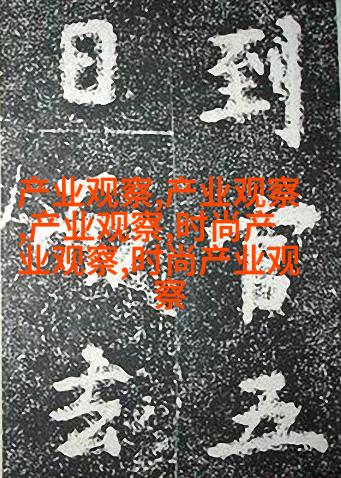 产业观察,产业观察
,产业观察,时尚产
业观察,时尚产业观
察
到
五
日
去